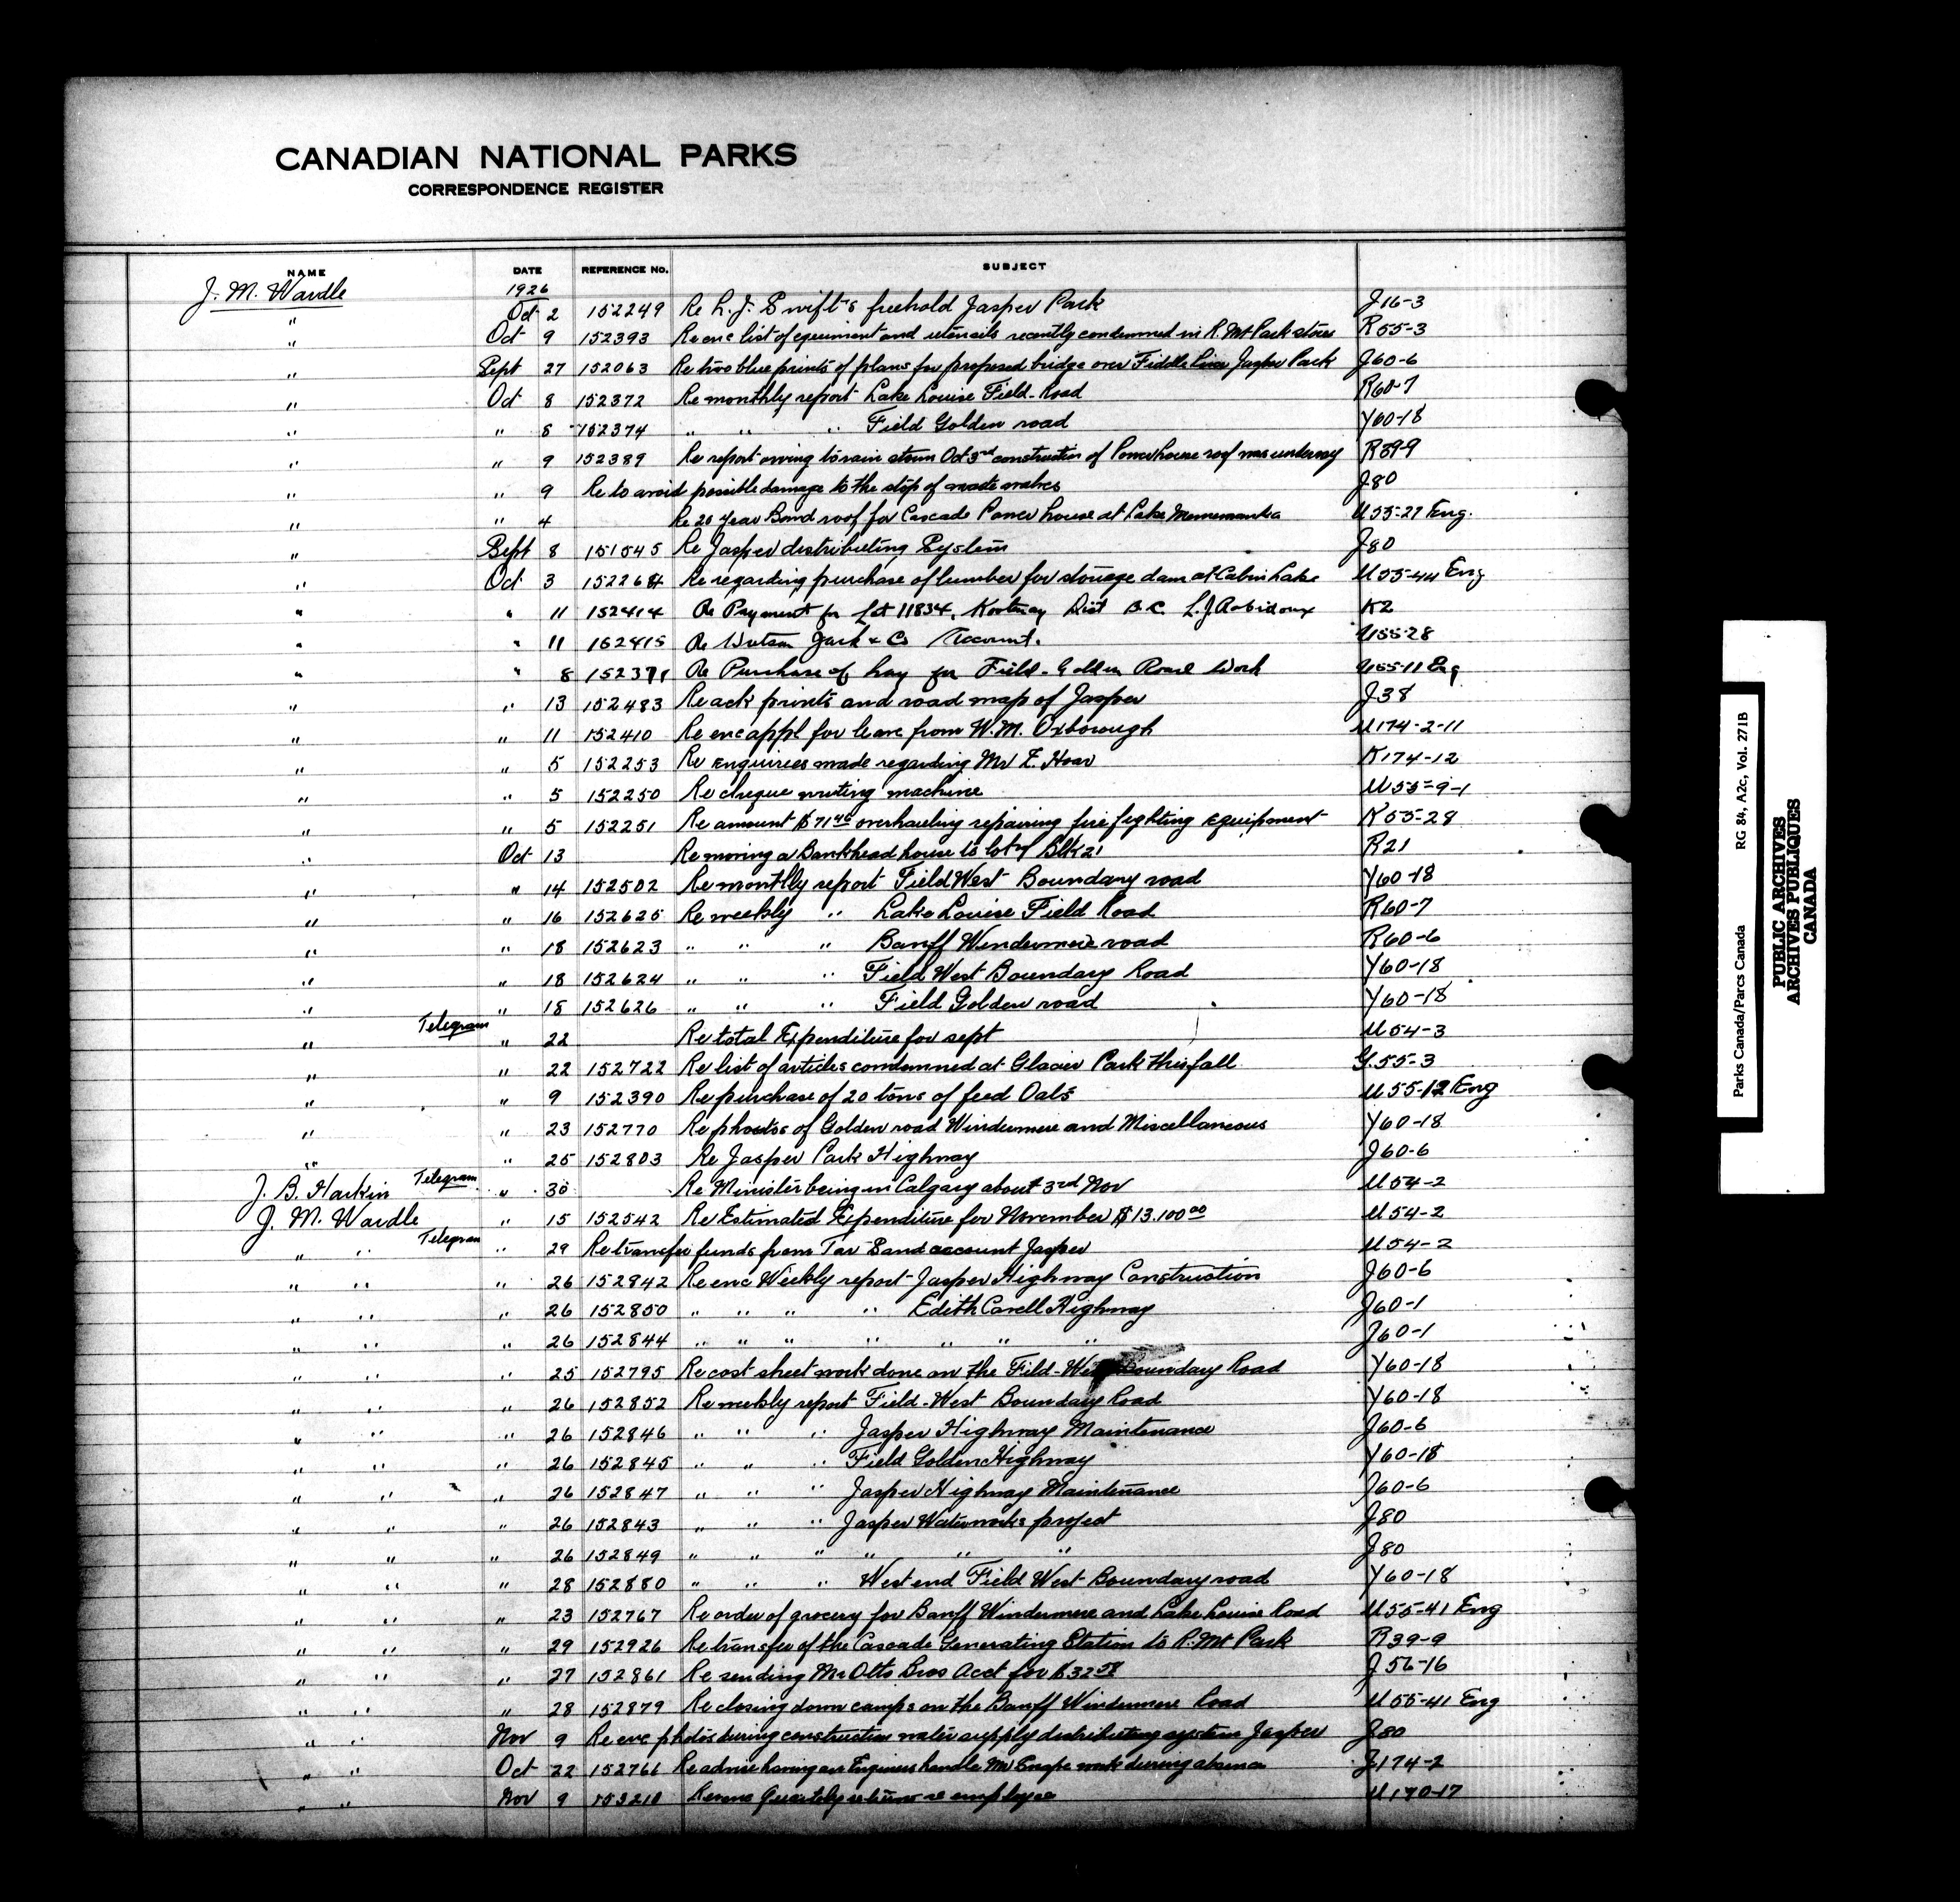 CANADIAN NATIONAL PARKS
CORRESPONDENCE REGISTER
NAME DATE REFERENCE No. SUBJECT
J. M. Wardle 1926
" Oct 2 152249 Re L. J. Swift's freehold Jasper Park J16-3
" Oct 9 152393 Re enc list of equipment and utensils recently condemned in R. Mt Park stores R55-3
" Sept 27 152063 Re two blue prints of plans for proposed bridge over Fiddle River Jasper Park J60-6
" Oct 8 152372 Re monthly report Lake Louise Field Road R60-7
" " 8 152374 " " " Field Golden road Y60-18
" " 9 152389 Re report owing to rain storm Oct 3rd construction of Powerhouse roof was underway R39-9
" " 9 Re to avoid possible damage to the stop of waste J80
" " 4 Re 20 year Bond roof for Cascade Power house at Lake U55-27 Eng.
" Sept 8 151545 Re Jasper distributing System J80
" Oct 3 152264 Re regarding purchase of lumber for storage dam at Cabin Lake U55-44 Eng
" " 11 152414 Re Payment for Lot 11834, Kootenay Dist B.C. L. J. Robidoux K2
" " 11 152415 Re Watson Jack & Co Account. U55-28
" " 8 152371 Re Purchase of hay for Field-Golden Road Work U55-11 Eng
" " 13 152483 Re ack prints and road map of Jasper J38
" " 11 152410 Re enc appl for leave from W. M. Oxborough U174-2-11
" " 5 152253 Re Enquiries made regarding Mr E. Hoar K174-12
" " 5 152250 Re cheque writing machine U55-9-1
" " 5 152251 Re amount $71.40 overhauling repairing fire fighting Equipment K55-28
" Oct 13 Re moving a Bankhead house to lot Blk 21 R21
" " 14 152502 Re monthly report Field West Boundary road Y60-18
" " 16 152625 Re weekly " Lake Louise Field Road R60-7
" " 18 152623 " " " Banff Windermere road R60-6
" " 18 152624 " " " Field West Boundary Road Y60-18
" " 18 152626 " " " Field Golden road Y60-18
" Telegram " 22 Re total Expenditure for sept U54-3
" " 22 152722 Re list of articles condemned at Glacier Park this fall G.55-3
" " 9 152390 Re purchase of 20 tons of feed Oats U55-12 Eng
" " 23 152770 Re photos of Golden road Windermere and Miscellaneous Y60-18
" " 25 152803 Re Jasper Park Highway J60-6
J. B. Harkin Telegram " 30 Re Minister being in Calgary about 3rd Nov U54-2
J. M. Wardle " 15 152542 Re Estimated Expenditure for November $13.100.00 U54-2
" " Telegram " 29 Re transfer funds from Tar Sand account Jasper U54-2
" " " 26 152842 Re enc Weekly report Jasper Highway Construction J60-6
" " " 26 152850 " " " " Edith Cavell Highway J60-1
" " " 26 152844 " " " " " " " J60-1
" " " 25 152795 Re cost sheet work done on the Field-West Boundary Road Y60-18
" " " 26 152852 Re weekly report Field-West Boundary Road Y60-18
" " " 26 152846 " " " Jasper Highway Maintenance J60-6
" " " 26 152845 " " " Field Golden Highway Y60-18
" " " 26 152847 " " " Jasper Highway Maintenance J60-6
" " " 26 152843 " " " Jasper Waterworks project J80
" " " 26 152849 " " " " " " J80
" " " 28 152880 " " " West end Field West Boundary road Y60-18
" " " 23 152767 Re order of grocery for Banff Windermere and Lake Louise Road U55-41 Eng
" " " 29 152926 Re transfer of the Cascade Generating Station to R. Mt Park R39-9
" " " 27 152861 Re sending Mr Otto Bros Acct for $32.58 J56-16
" " " 28 152879 Re closing down camps on the Banff Windermere Road U55-41 Eng
" " Nov 9 Re enc photos during construction water supply distributing system Jasper J80
" " Oct 22 152766 Re advise having an Engineer handle Mr work during absence J174-2
" " Nov 9 153210 Re enc Quarterly returns re employee U170-17
Parks Canada/Parcs Canada RG 84, A2c, Vol. 271B
PUBLIC ARCHIVES
ARCHIVES PUBLIQUES
CANADA